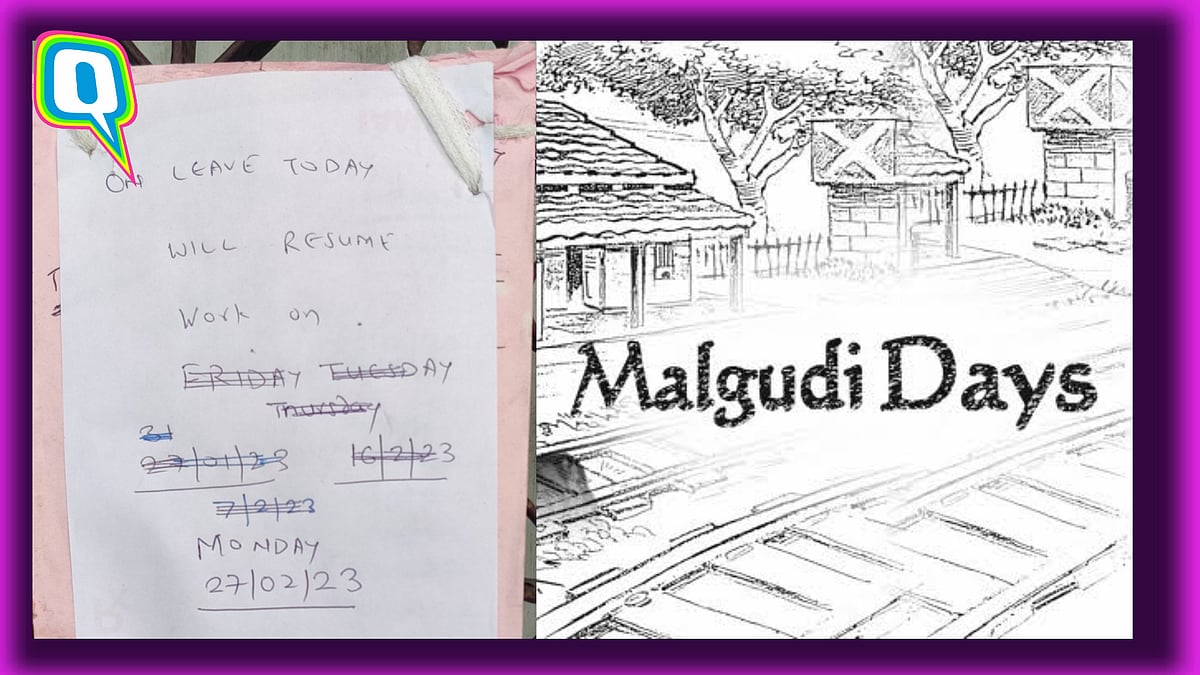 Q
On LEAVE TODAY
WILL RESUME
Work on .
FRIDAY TUESDAY
Thursday
31
27/01/23 16/2/23
7/2/23
MONDAY
27/02/23
Malgudi Days